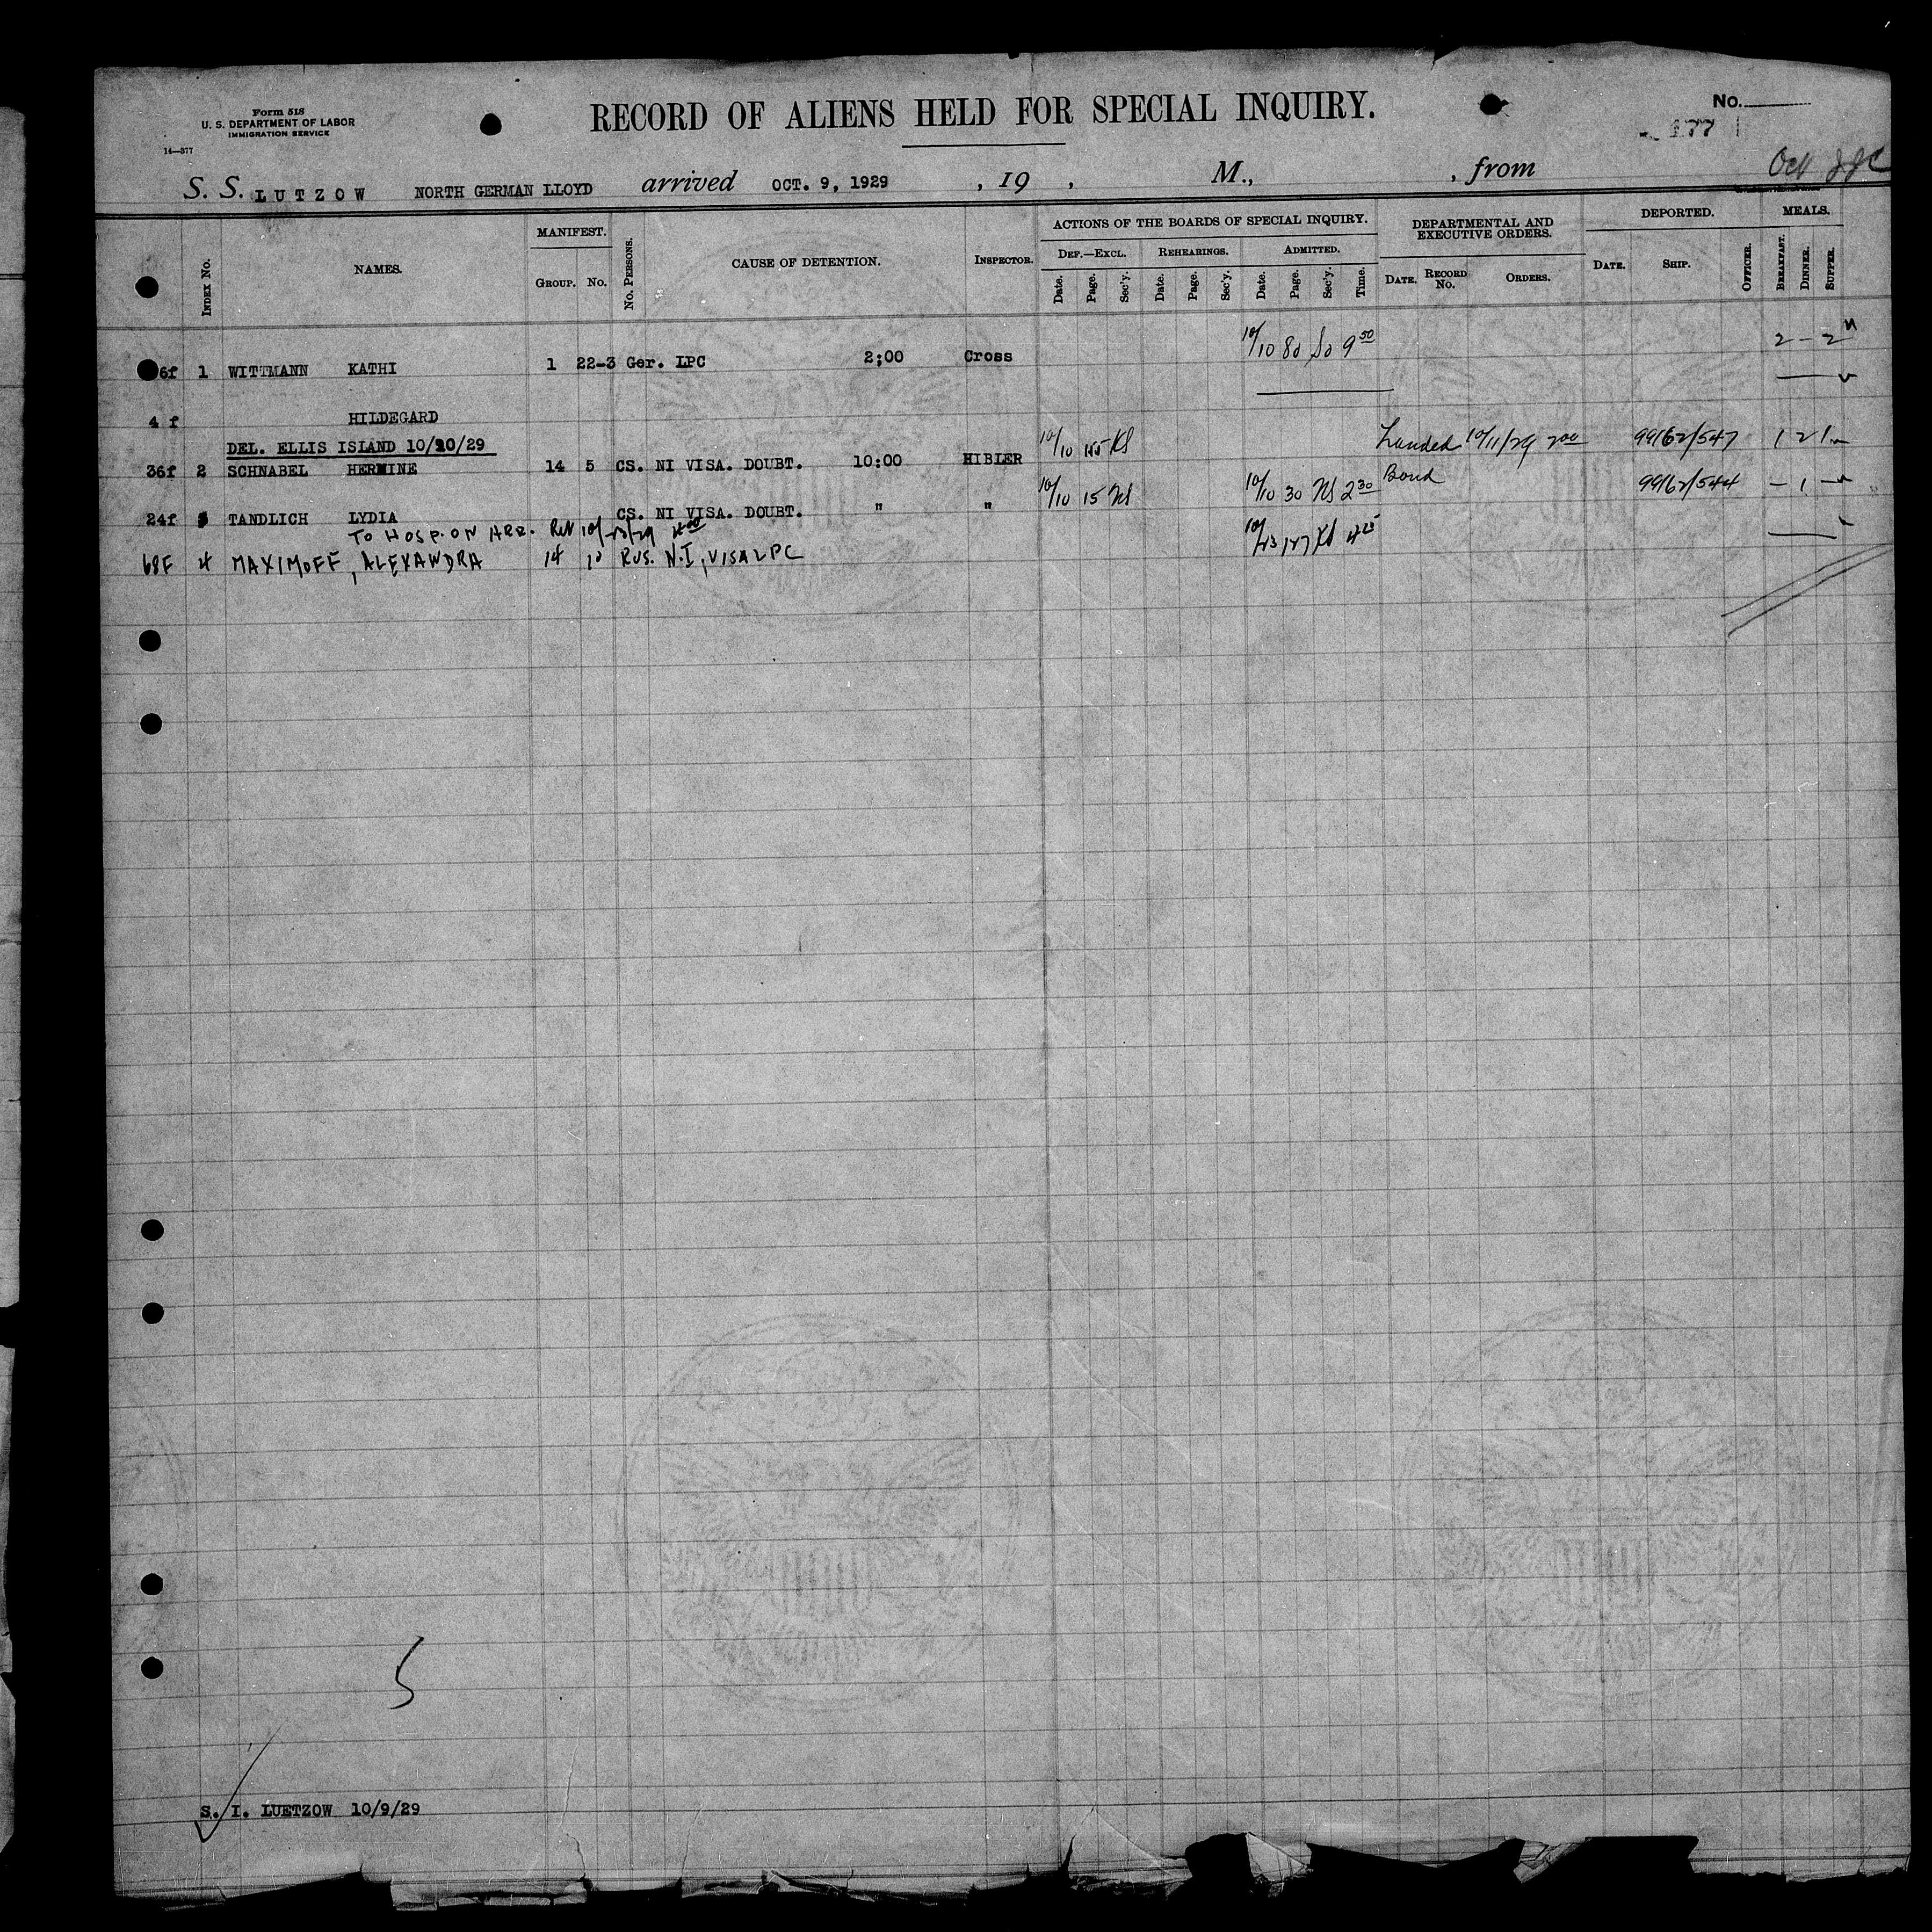 Form 518
U. S. DEPARTMENT OF LABOR
IMMIGRATION SERVICE
14—377
RECORD OF ALIENS HELD FOR SPECIAL INQUIRY.
No.
177
S. S. LUTZOW NORTH GERMAN LLOYD arrived OCT. 9, 1929 , 19 , M., , from
Oct
INDEX No. NAMES. MANIFEST. GROUP. No. No. PERSONS. CAUSE OF DETENTION. INSPECTOR. ACTIONS OF THE BOARDS OF SPECIAL INQUIRY. DEF.—EXCL. Date. Page. Sec'y. REHEARINGS. Date. Page. Sec'y. ADMITTED. Date. Page. Sec'y. Time. DEPARTMENTAL AND EXECUTIVE ORDERS. DATE. RECORD No. ORDERS. DEPORTED. DATE. SHIP. OFFICER. MEALS. BREAKFAST. DINNER. SUPPER.
6f 1 WITTMANN KATHI 1 22-3 Ger. LPC 2;00 Cross 10/10 80 So 9 50 2 – 2
4 f HILDEGARD
DEL. ELLIS ISLAND 10/10/29
36f 2 SCHNABEL HERMINE 14 5 CS. NI VISA. DOUBT. 10:00 HIBLER 10/10 KS Landed 10/11/29 2 00 99162/547 1 2 1
24f 3 TANDLICH LYDIA CS. NI VISA. DOUBT. " " 10/10 15 NS 10/10 30 NS 2 30 Bond 99162/544 – 1 –
TO HOSP. ON ARR. Rel 10/23/29
68F 4 MAXIMOFF, ALEXANDRA 14 10 RUS. N.I, VISA LPC 10/23 127 KS 4 25
5
S. I. LUETZOW 10/9/29